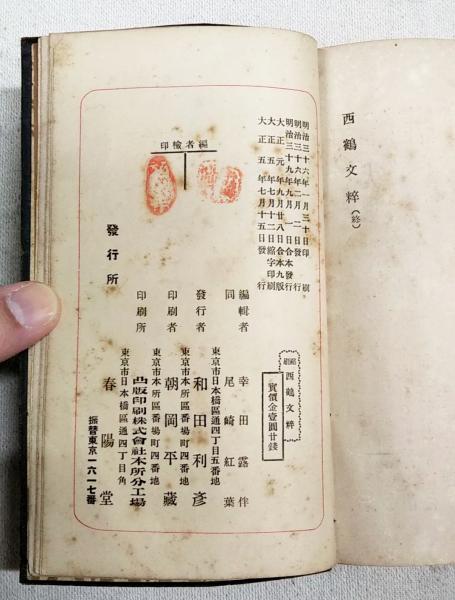 西鶴文粋(終)
明治三十六年一月三十日印刷
明治三十六年二月二日發行
明治三十九年九月一日合本發行
大正元年九月廿八日合本九版
大正五年七月十二日縮字印刷
大正五年七月十五日發行
縮刷
西鶴文粋
實價金壹圓廿錢
編者檢印
編輯者 幸田露伴
同 尾崎紅葉
東京市日本橋區通四丁目五番地
發行者 和田利彦
東京市本所區番場町四番地
印刷者 朝岡平藏
東京市本所區番場町四番地
印刷所 凸版印刷株式會社本所分工場
東京市日本橋區通四丁目角
發行所 春陽堂
振替東京一六一七番